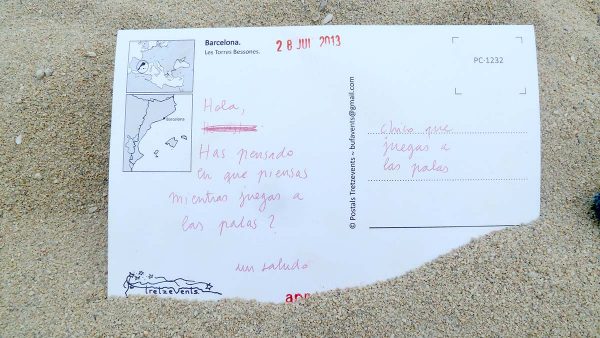 Barcelona.
Les Torres Bessones.
28 JUL 2013
PC-1232
Barcelona
Hola,
Has pensado
en que piensas
mientras juegas a
las palas?
un saludo
© Postals Tretzevents ~ bufavents@gmail.com
chico que
juegas a
las palas
tretzevents